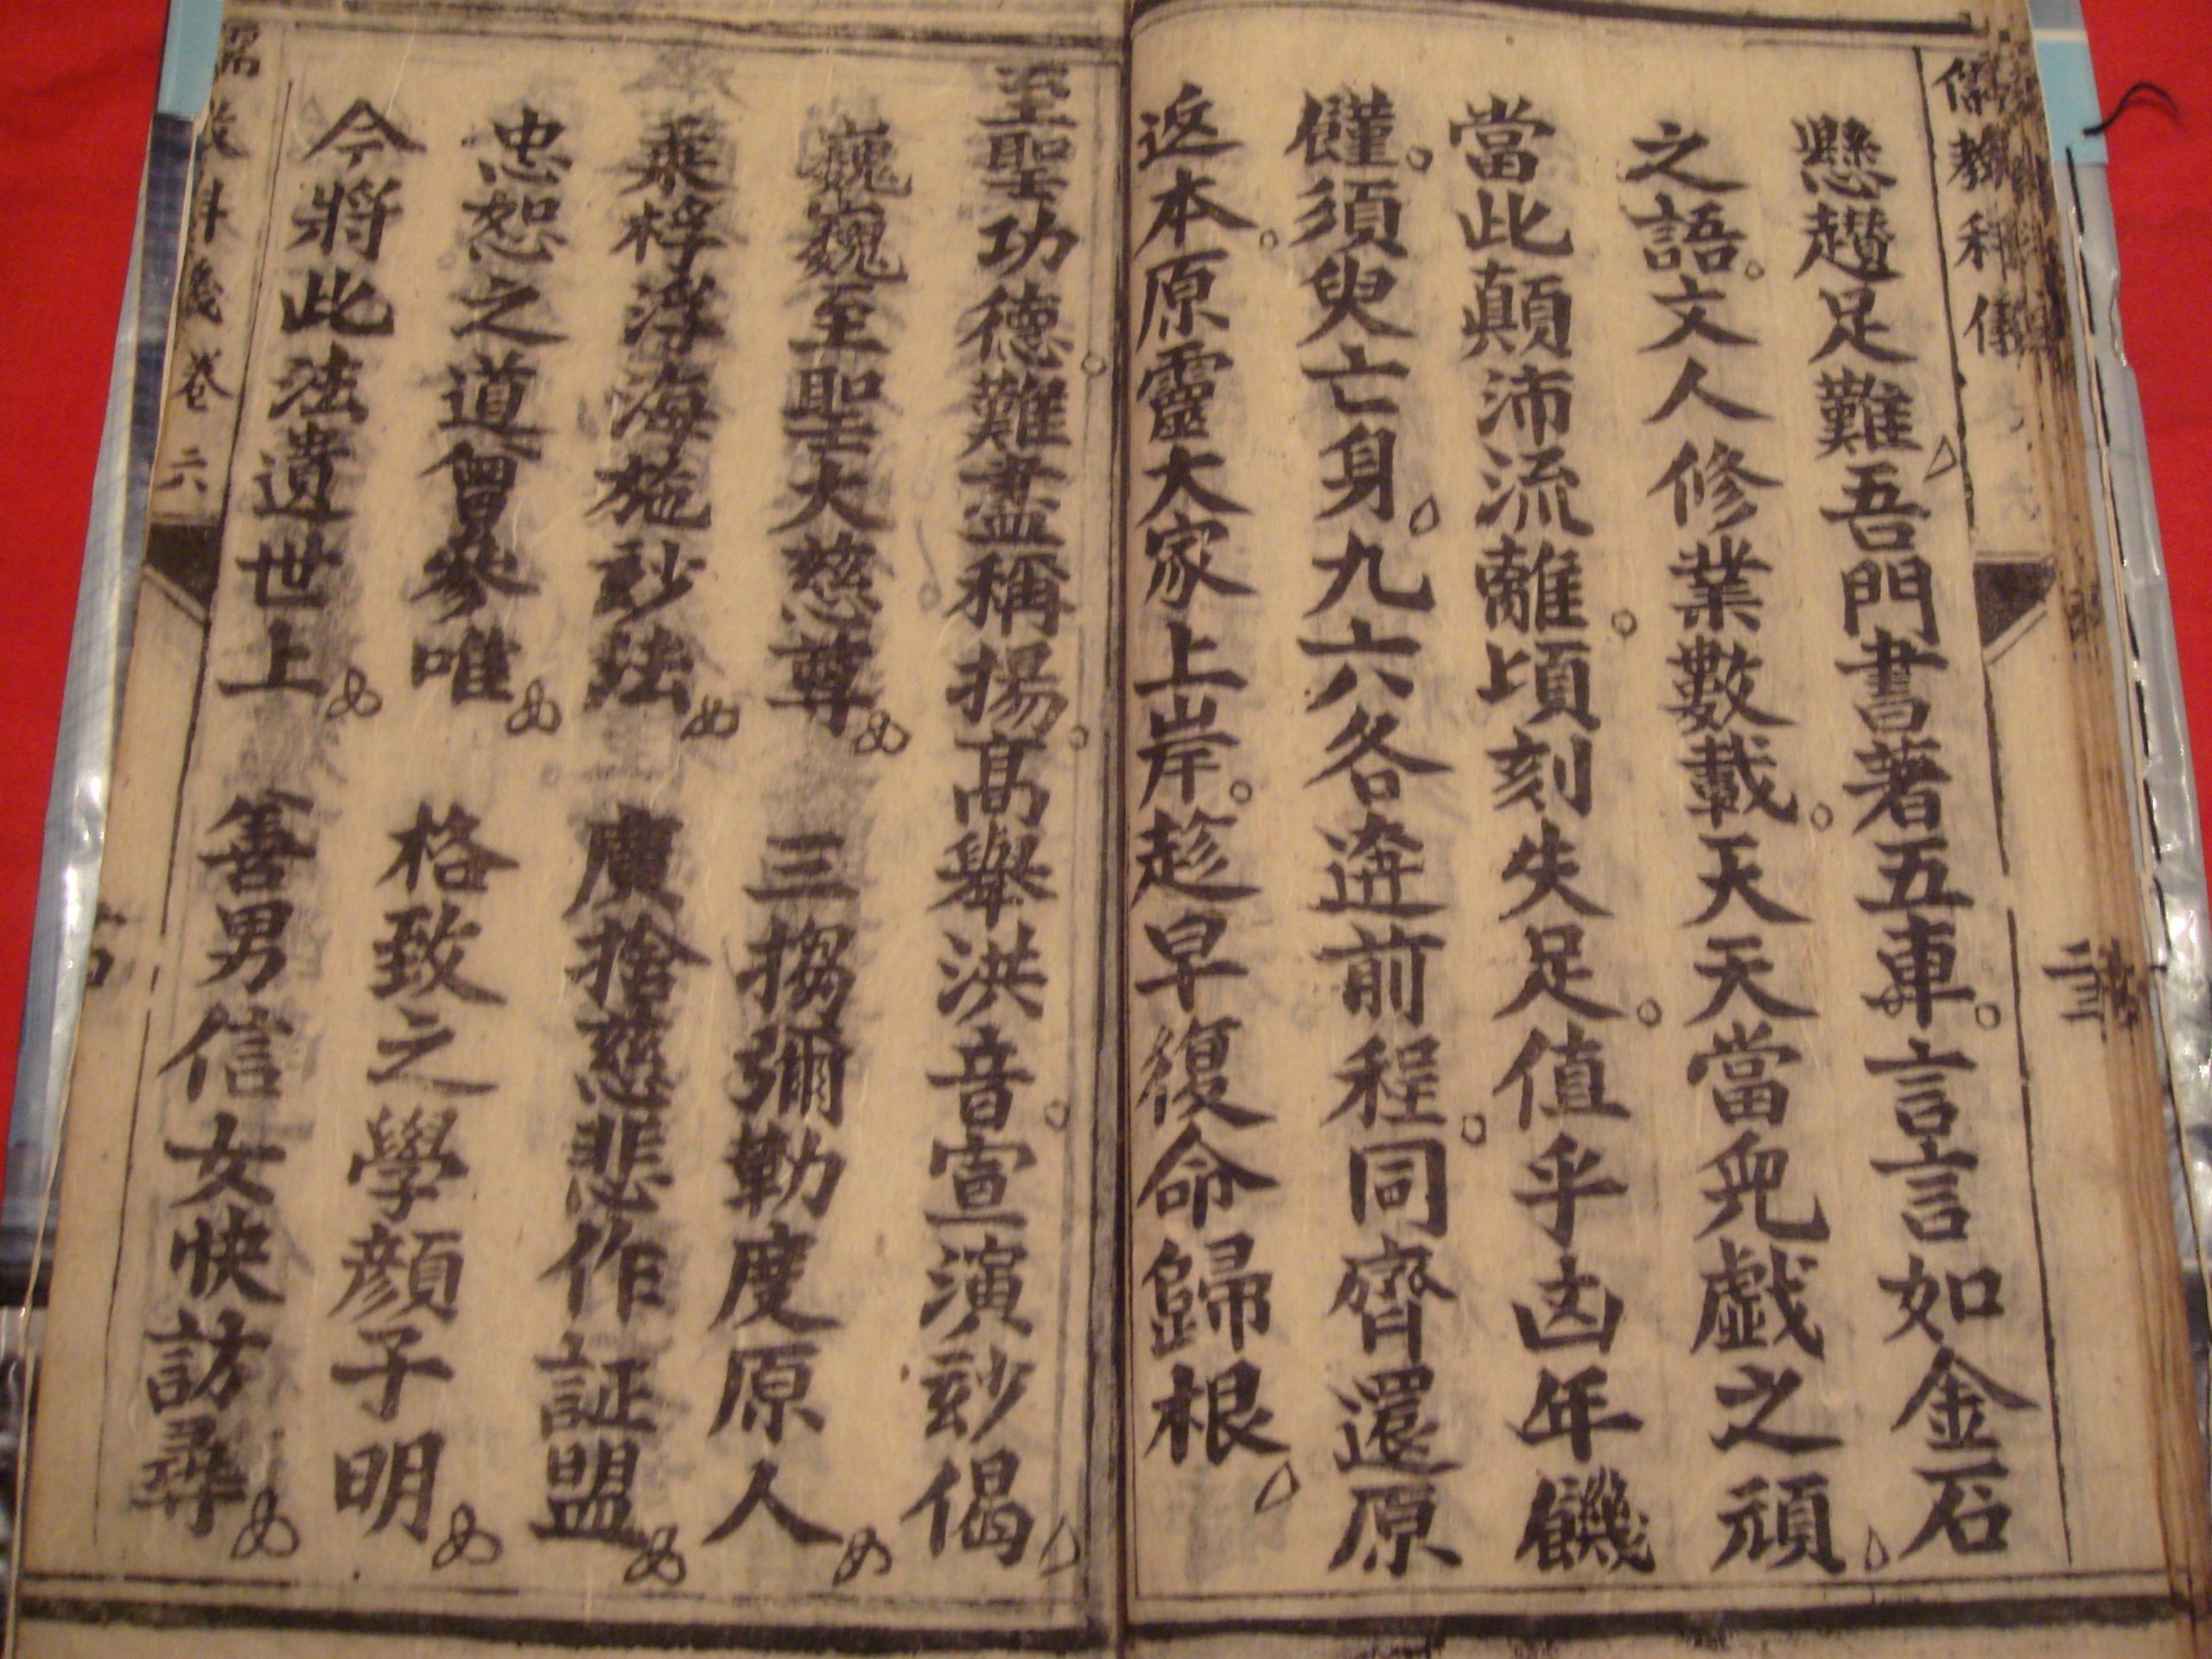 儒教科儀
懸趲足難吾門書著五車言言如金石
之語文人修業數載天天當兒戲之頑
當此顛沛流離頃刻失足值乎凶年饑
饉須臾亡身九六各迸前程同齊還原
返本原靈大家上岸趁早復命歸根
至聖功德難盡稱揚高舉洪音宣演玅偈
巍巍至聖大慈尊 三搊彌勒度原人
乘桴浮海施玅法 廣捨慈悲作証盟
忠恕之道曾參唯 格致之學顏子明
今將此法遺世上 善男信女快訪尋
儒教科儀卷六